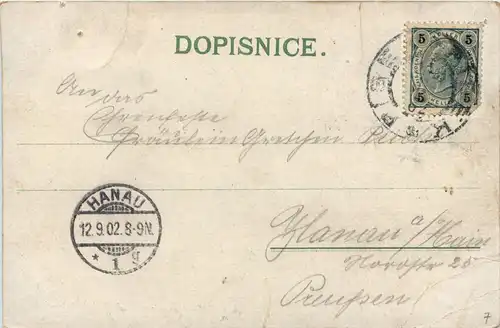 DOPISNICE.
5 5
5 5
An das
Fräulein Gretchen
HANAU
12.9.02.8-9N.
* 1 g
Hanau a/Main
Nordstr 25
Preußen
7